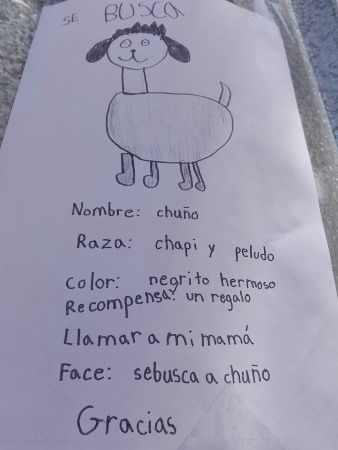 SE BUSCA
Nombre: chuño
Raza: chapi y peludo
color: negrito hermoso
Recompensa: un regalo
Llamar a mi mamá
Face: sebusca a chuño
Gracias